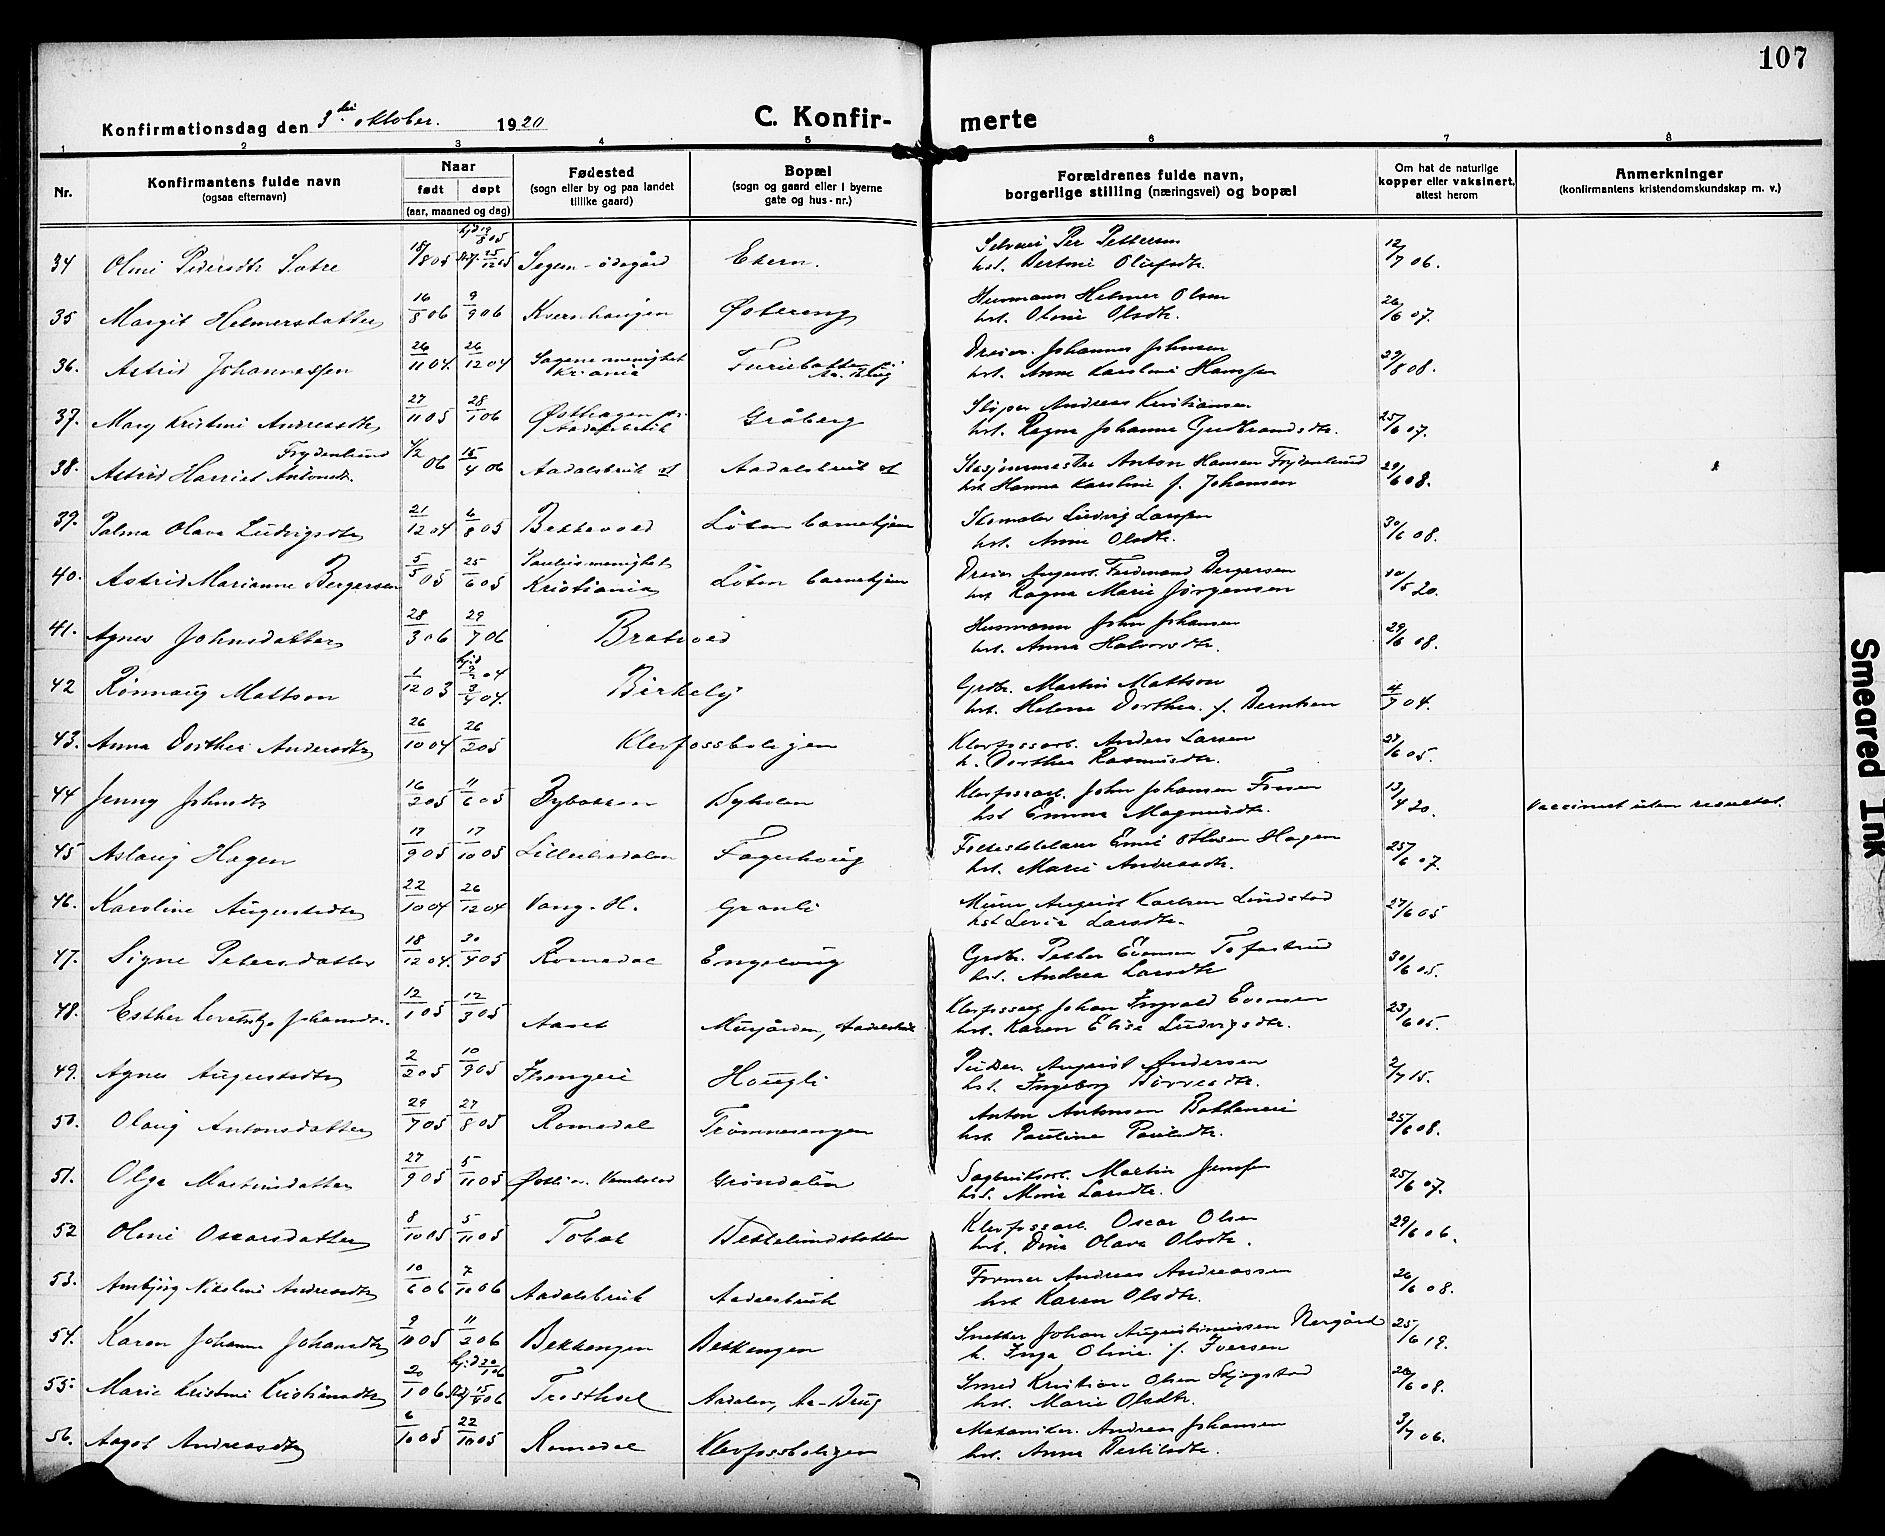 107
Konfirmationsdag den 3die oktober. 1920
C. Konfirmerte
1 2 3 4 5 6 7 8
Nr. Konfirmantens fulde navn (ogsaa efternavn) Naar født døpt (aar, maaned og dag) Fødested (sogn eller by og paa landet tillike gaard) Bopæl (sogn og gaard eller i byerne gate og hus-nr.) Forældrenes fulde navn, borgerlige stilling (næringsvei) og bopæl Om hat de naturlige kopper eller vaksinert, attest herom Anmerkninger (konfirmantens kristendomskundskap m. v.)
34 Oline Pedersdtr Sætre 15/8 05 hj.d 19/8 05 25/12 05 Segen-ødegård Ekern. Per Pettersen hst. Bertine Olufsdtr. 12/7 06.
35 Margit Helmersdatter 16/8 06 9/9 06 Kvernhaugen Østereng Husmann Helmer Olsen hst. Oline Olsdtr. 26/6 07.
36. Astrid Johannessen 26/11 04. 26/12 04 Sagene menighet Kr.ania Dreier. Johannes Johnsen hst. Anne Karoline Hansen 29/8 08.
37. Mary Kristine Andreasdtr 27/11 05 28/1 06 Østhagen Aadalsbruk Gråberg Støper Andreas Kristiansen hst. Ragna Johanne Gudbrandsdtr. 25/6 07.
38. Astrid Harriet Antonsdtr. Frydenlund 1/2 06 15/4 06 Aadalsbruk st Aadalsbruk st Stasjonsmester Anton Hansen Frydenlund hst Hanna Karoline f. Johansen 29/6 08.
39. Palma Olava Ludvigsdtr 21/12 04 6/8 05 Bekkevold Løten barnehjem Skomaker Ludvig Larsen hst. Anne Olsdtr. 30/6 08.
40. Astrid Marianne Bergersen 5/5 05 25/6 05 Paulus menighet Kristiania Løten barnehjem Dreier August Ferdinand Bergersen hst Ragna Marie Jørgensen 10/5 20.
41. Agnes Johnsdatter 28/3 06 29/7 06 Bratvold Husmann John Johansen hst. Anna Halvorsdtr. 29/6 08.
42 Rønnaug Mattson 1/12 03 hj.d 2/2 04 3/4 04. Birkely Grdbr. Martin Mattson hst. Helene Dorthea f. Berntsen 4/7 04.
43. Anna Dorthea Andersdtr 26/10 04 26/2 05 Klevfossboligen Klevfossarb. Anders Larsen h. Dorthea Rasmusdtr. 27/6 05.
44 Jenny Johnsdtr 16/2 05 11/6 05 Bybakken Byholen Klevfossarb. John Johansen Fossen hst Emma Magnusdtr. 13/4 20. Vaccinert uten resultat.
45 Aslaug Hagen 17/9 05 17/10 05 Lilleelvedalen Fagerhaug Emil Othisen Hagen hst. Marie Andreasdtr. 25/6 07.
46. Karoline Augustsdtr 22/10 04 26/12 04 Vang. H. Granli Murer August Karlsen Lundstad hst Lovise Larsdtr. 27/6 05
47. Signe Petersdatter 18/12 04. 30/4 05 Romedal Engelaug Grdbr. Petter Evensen Tofastrud hst. Andrea Larsdtr 30/6 05.
48. Esther Johansdtr. 12/1 05 12/3 05 Aaset Murgården, Aadalsbruk Klevfossarb Johan Ingvald Evensen hst. Karen Elise Ludvigsdtr. 23/6 05.
49. Agnes Augustsdtr 2/2 05 10/9 05 Haugli August Andersen hst. Ingeborg 2/7 15.
50. Olaug Antonsdatter 29/7 05 27/8 05 Romedal Trømnesengen Anton Antonsen Bakkeneie hst. Pauline Paulsdtr. 25/6 08.
51. Olga Martinsdatter 27/9 05 5/11 05 Grøndalen Sagbruksarb. Martin Jensen hst. Marie Larsdtr. 25/6 07.
52 Oline Oscarsdatter 8/10 05 5/11 05 Tobak Bekkelundstubben Klevfossarb. Oscar Olsen hst. Dina Olava Olsdtr. 29/6 06.
53. Arnbjørg Nikoline Andreasdtr 10/6 06 7/10 06 Aadalsbruk Aadalsbruk Former Andreas Andreassen hst Karen Olsdtr. 26/6 08.
54. Karen Johanne Johansdtr 9/10 05 11/2 06 Bekkengen Bekkengen Snekker Johan Augustinussen Nergård h. Inga Oline f. Iversen 25/6 19.
55. Marie Kristine Kristiansdtr 20/1 06 hj.d 20/1 06 Frosthol Aadalen, Aa-Brug Smed Kristian Olsen Skjegstad hst. Marie Olsdtr. 26/6 08.
56. Aagot Andreasdtr 6/10 05 22/10 05 Romedal Klevfossboligen Mekaniker. Andreas Johansen hst. Anna Bertilsdtr. 3/7 06.
Smeared Ink